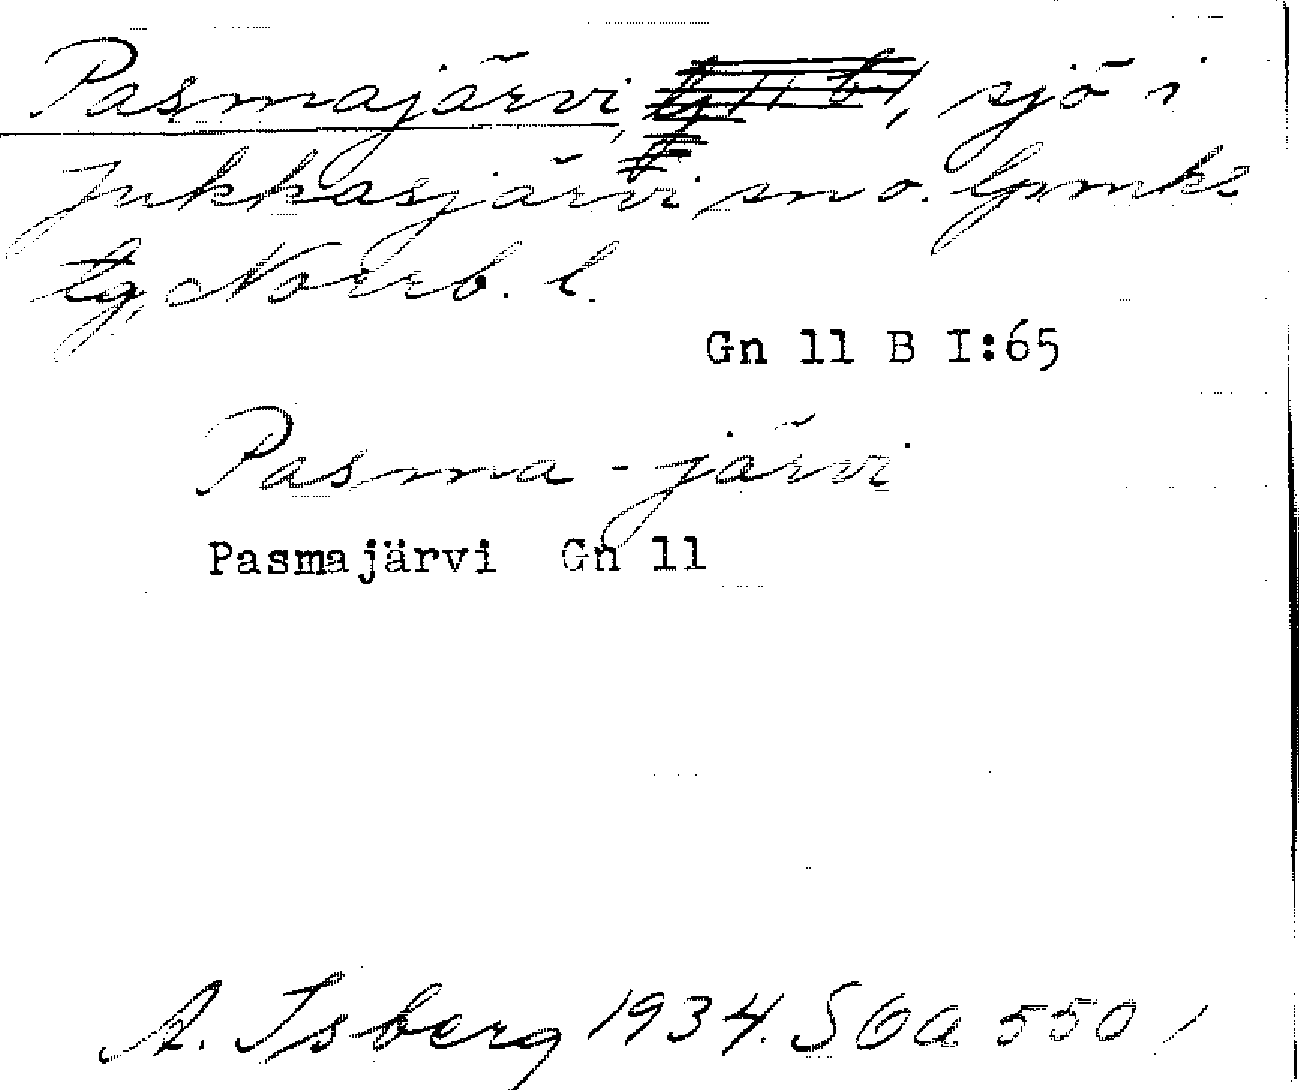 Pasmajärvi, sjö i
Jukkasjärvi sn o. lpmks
tg, Norrb. l.
Gn 11 B I:65
Pasma-järvi
Pasmajärvi Gn 11
A. Isberg 1934. SOA 550